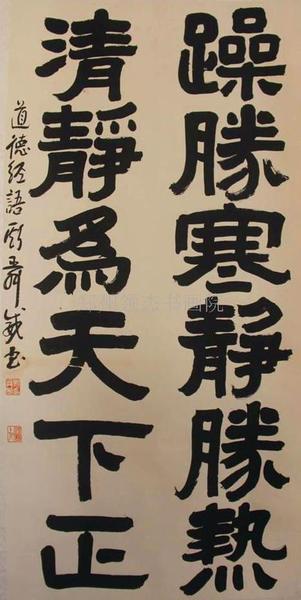 躁勝寒靜勝熱
清靜為天下正
道德經語 書
书画院